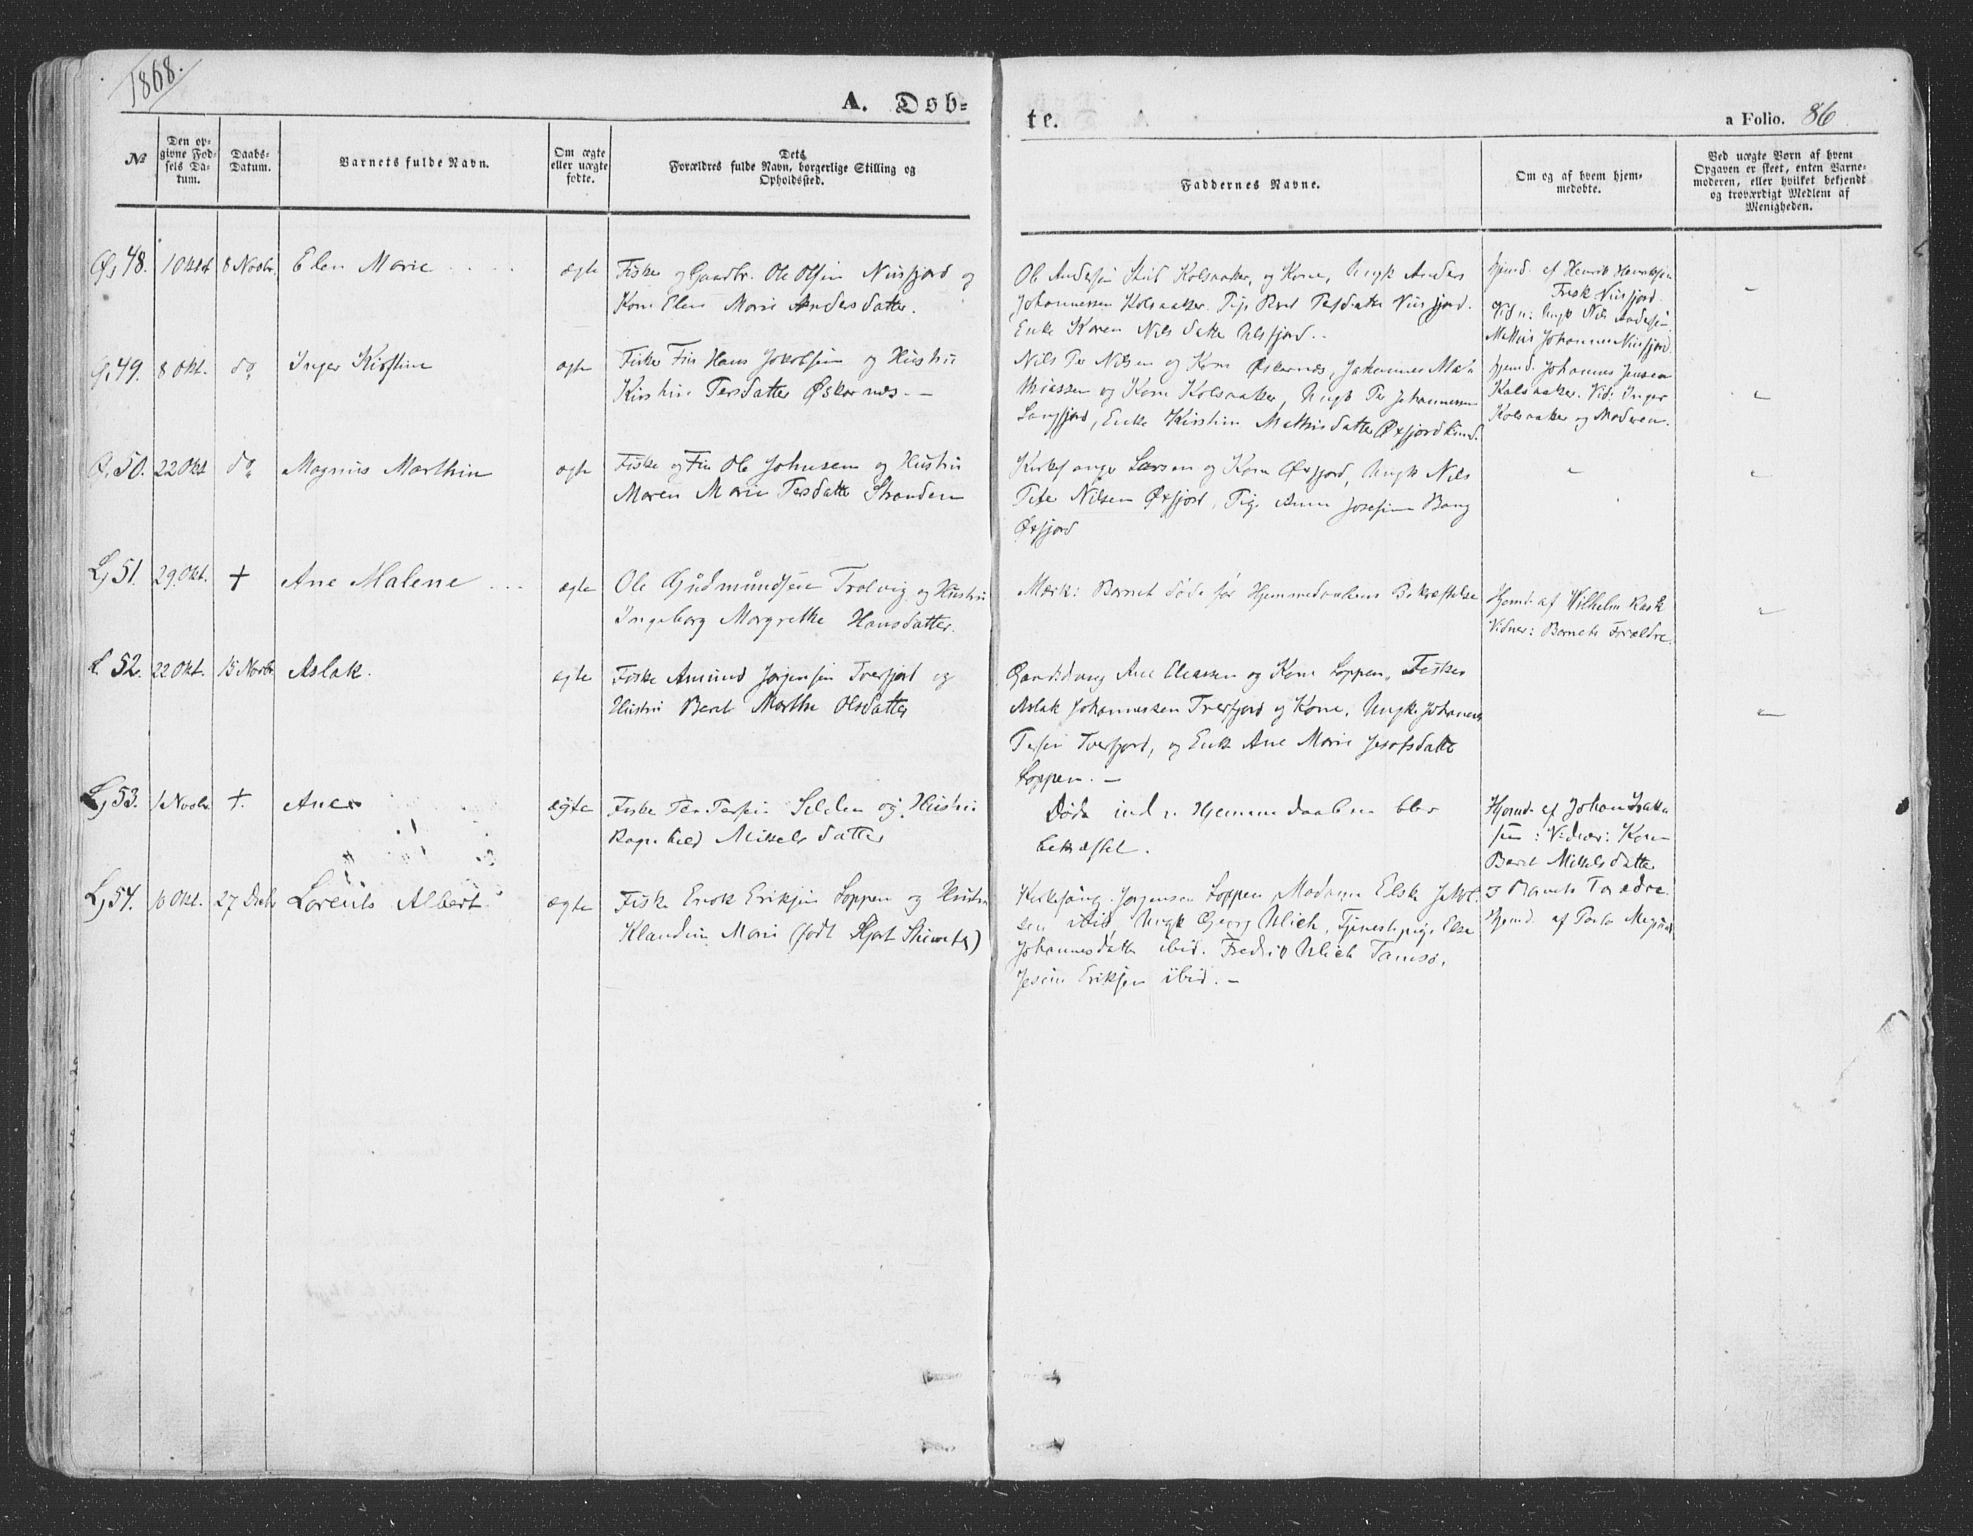 1868.
A. Døb-
te.
a Folio. 86
№
Den op-
givne Fød-
sels Da-
tum.
Daabs-
Datum.
Barnets fulde Navn.
Om ægte
eller uægte
fødte.
Dets
Forældres fulde Navn, borgerlige Stilling og
Opholdssted.
Faddernes Navne.
Om og af hvem hjem-
medøbte.
Ved uægte Børn af hvem
Opgaven er skeet, enten Barne-
moderen, eller hvilket bekjendt
og troværdigt Medlem af
Menigheden.
48. 1 Oktob 8 Novbr. Elen Marie ægte Fisker og Gaardbr. Ole Olsen Nusfjord og
Kone Elen Marie Andersdatter.
Ole Andersen Kolsaaker, og Kone, Ungk Anders
Johannessen Kolsaaker. Pige Beret Persdatter Nusfjord.
Enke Karen Nilsdatter Ulsfjord.
hjemd. af Henrik Henriksen
Fisk. Nusfjord.
Vidn: Ungk Nils Andersen.
Mathis Johannes Nusfjord.
49. 8 Okt. do Inger Kirstine ægte Fisker Fin Hans Jakobsen og Hustru
Kirstine Persdatter Øskornes. -
Nils Per Nilsen og Kone Øskornes, Johannes Mat
thiassen og Kone Kolsaaker, Ungk Per Johannessen
Langfjord, Enke Kirstine Mathisdatter Øxfjordbund.
hjemd. Johannes Jensen
Kolsaaker. Vid: Inger
Kolsaaker og Moderen.
50. 22 Okt do Magnus Marthin ægte Fisker og Fin Ole Johnsen og Hustru
Maren Marie Persdatter Stranden
Kirkesanger Larsen og Kone Øxfjord, Ungk Nils
Peter Nilsen Øxfjord, Pige Anne Josefine Bang
Øxfjord
L, 51. 29. Okt. + Ane Malene ægte Ole Gudmundsen Trolvig og Hustru
Ingeborg Margrethe Hansdatter.
Mærk: Barnet døde før Hjemmedaabens Bekræftelse
Hjemd. af Wilhelm Rask
Vidner: Barnets Forældre.
L 52. 22 Okt. 15 Novbr Aslak. ægte Fisker Amund Jørgensen Tverfjord og
Hustru Beret Marthe Olsdatter
Ane Eleassen og Kone Loppen, Fisker
Aslak Johannessen Tverfjord og Kone, Ungk. Johannes
Persen Tverfjord, og Enke Ane Marie Josefsdatter
Loppen. -
L, 53. 1 Novbr +. Ane ægte Fisker Per Persen Selden og Hustru
Ragnhild Mikkelsdatter
Døde inden Hjemmedaaben blev
bekræftet.
Hjemd. af Johan Isak
sen: Vidner: Kone
Beret Mikkelsdatter
og Barnets Forældre.
L, 54. 10 Okt. 27 Decbr Lorents Albert ægte Fisker Enok Eriksen Loppen og Hustru
Klaudine Marie (født Hjort )
Kirkesang. Jørgensen Loppen, Madame Elske Jakob
sen ibid, Ungk Georg Ulich, Tjenestepige Else
Johannesdatter ibid. Fredrik Ulich Tamsø,
Jesein Eriksen ibid. -
Hjemd. af